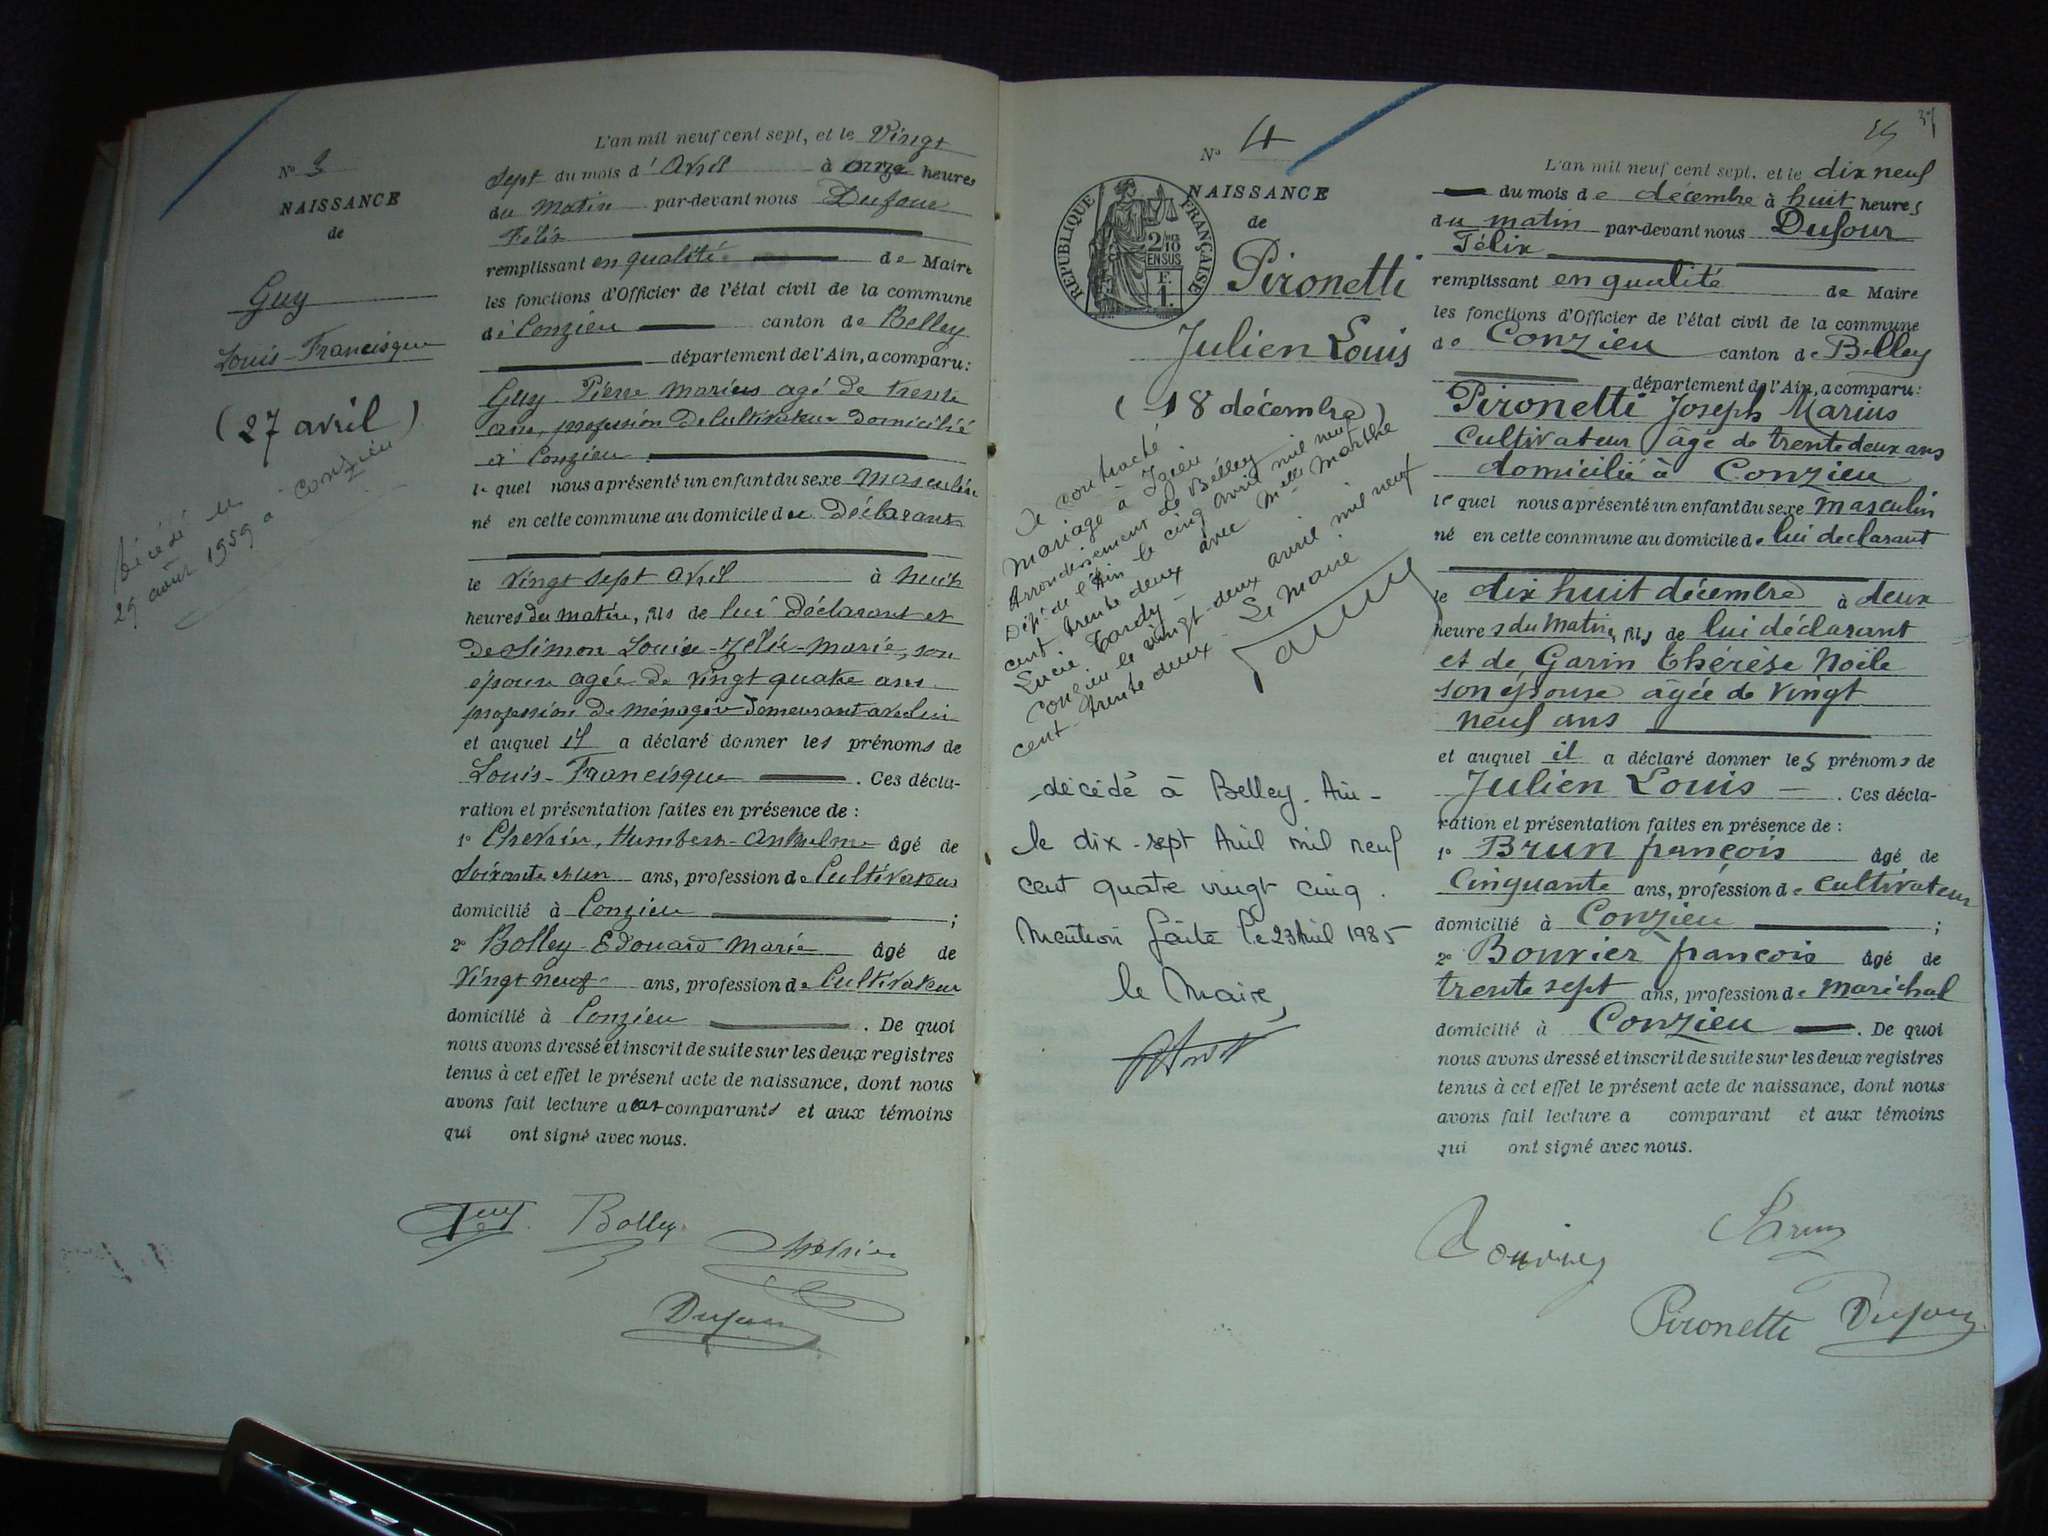 No 3
NAISSANCE
de
Guy
Louis-Francisque
(27 avril)
Décédé le
29 août 1959 à Conzieu
L'an mil neuf cent sept, et le Vingt
sept du mois d'Avril à onze heures
du Matin par-devant nous Dufour
Félix
remplissant en qualité de Maire
les fonctions d'Officier de l'état civil de la commune
de Conzieu canton de Belley
département de l'Ain, a comparu:
Guy Pierre Marius agé de trente
ans, profession de Cultivateur domicilié
à Conzieu
le quel nous a présenté un enfant du sexe masculin
né en cette commune au domicile du Déclarant
le vingt sept avril à huit
heures du matin, fils de lui Déclarant et
de Simon Louise-Zélie-Marie, son
épouse agée de vingt quatre ans
profession de ménagère demeurant avec lui
et auquel il a déclaré donner les prénoms de
Louis-Francisque. Ces décla-
ration et présentation faites en présence de :
1o Chevrier, Humbert-Anthelme âgé de
Soixante et un ans, profession de Cultivateur
domicilié à Conzieu ;
2o Bolley Edouard Marie âgé de
Vingt neuf ans, profession de Cultivateur
domicilié à Conzieu. De quoi
nous avons dressé et inscrit de suite sur les deux registres
tenus à cet effet le présent acte de naissance, dont nous
avons fait lecture aux comparants et aux témoins
qui ont signé avec nous.
Guy Bolley Chevrier
Dufour
37
No 4
NAISSANCE
de
REPUBLIQUE FRANÇAISE
2/10
EN SUS
F.
1.
Pironetti
Julien Louis
(18 décembre)
A contracté
mariage à Izieu
Arrondissement de Belley
Dépt de l'Ain le cinq avril mil neuf
cent trente deux avec Melle Marthe
Lucie Tardy
Conzieu le vingt-deux avril mil neuf
cent trente deux. Le Maire
décédé à Belley. Ain-
le dix-sept Avril mil neuf
cent quatre vingt cinq.
Mention faite le 23 Avril 1985
le Maire,
L'an mil neuf cent sept. et le dix neuf
du mois de décembre à huit heures
du matin par-devant nous Dufour
Félix
remplissant en qualité de Maire
les fonctions d'Officier de l'état civil de la commune
de Conzieu canton de Belley
département de l'Ain, a comparu:
Pironetti Joseph Marius
Cultivateur âgé de trente deux ans
domicilié à Conzieu
le quel nous a présenté un enfant du sexe masculin
né en cette commune au domicile de lui declarant
le dix huit décembre à deux
heures du Matin, fils de lui déclarant
et de Garin Thérèse Noële
son épouse âgée de vingt
neuf ans
et auquel il a déclaré donner les prénoms de
Julien Louis. Ces décla-
ration et présentation faites en présence de :
1o Brun françois âgé de
Cinquante ans, profession de cultivateur
domicilié à Conzieu ;
2o Bouvier françois âgé de
trente sept ans, profession de maréchal
domicilié à Conzieu. De quoi
nous avons dressé et inscrit de suite sur les deux registres
tenus à cet effet le présent acte de naissance, dont nous
avons fait lecture a comparant et aux témoins
qui ont signé avec nous.
Bouvier Brun
Pironetti Dufour